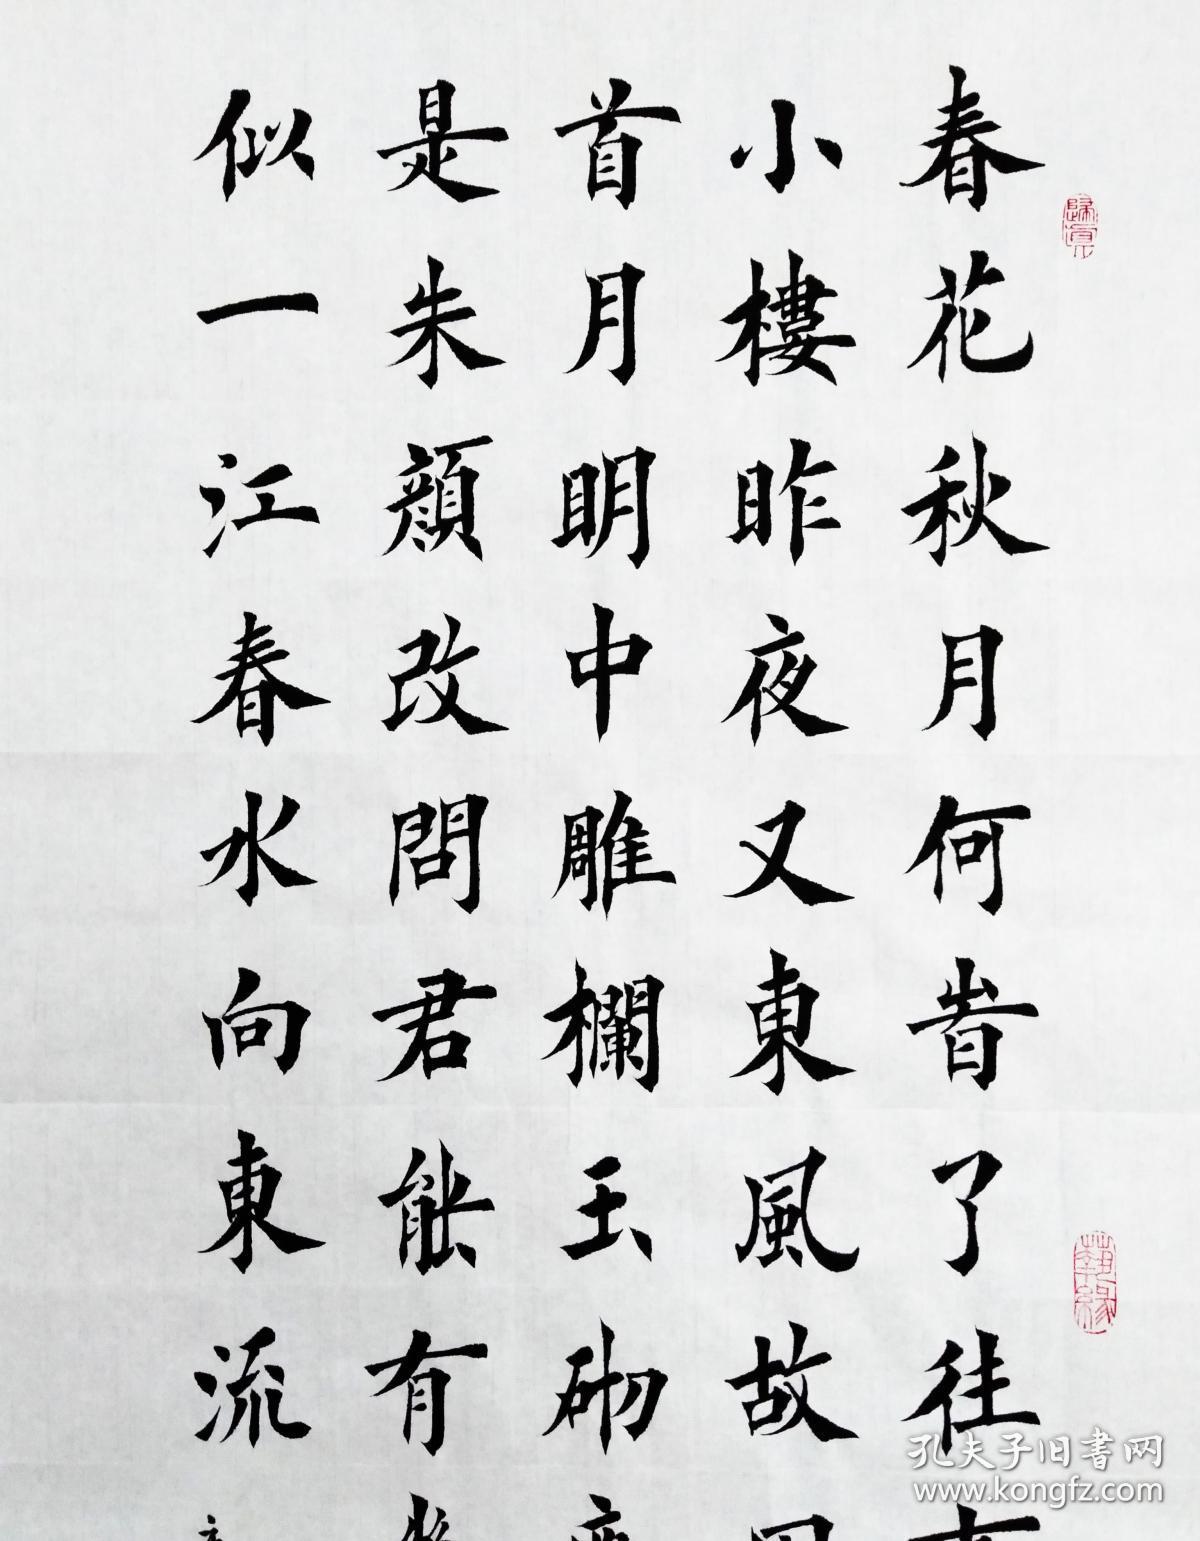 春花秋月何旹了往
小樓昨夜又東風故
首月明中雕欄玉砌
是朱顔改問君能有
似一江春水向東流
孔夫子旧書网
www.kongfz.com